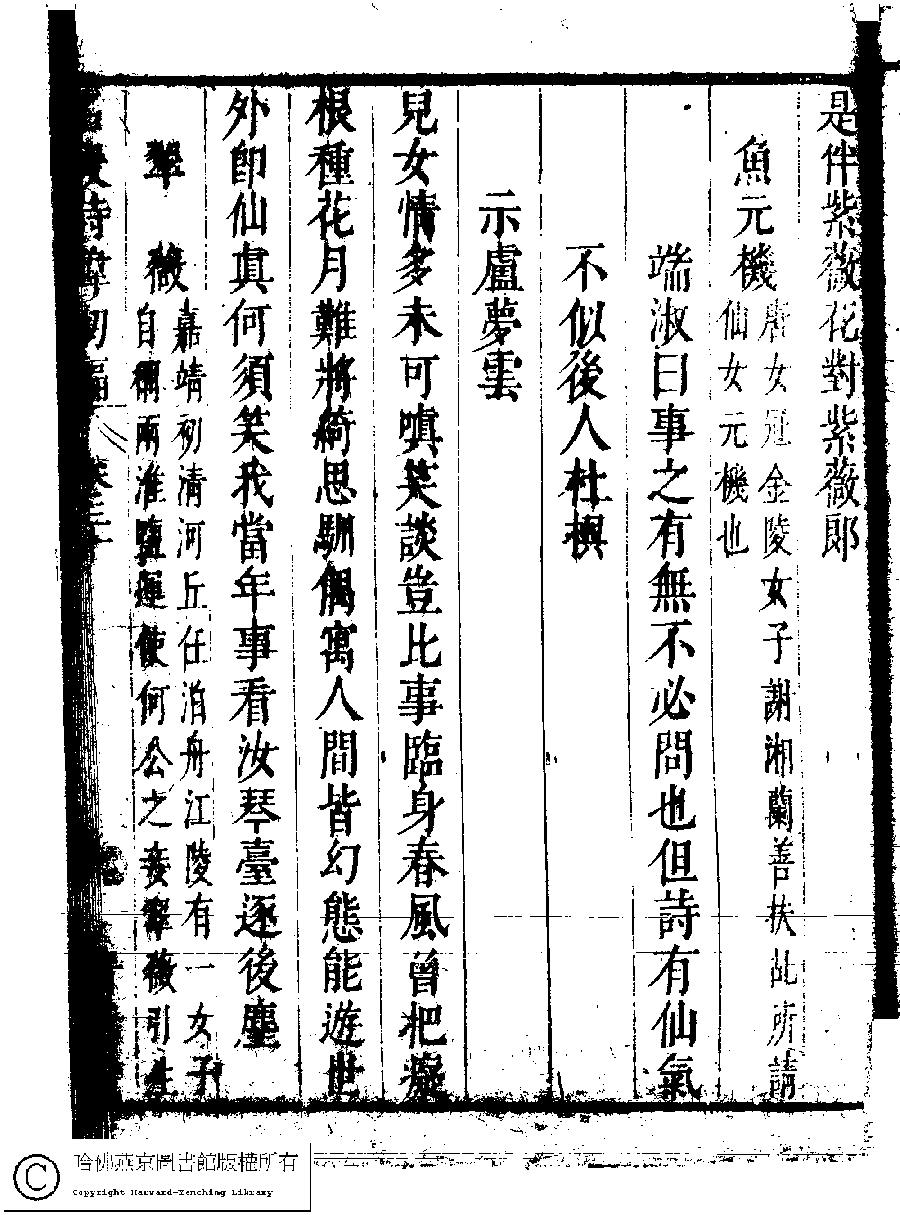 是伴紫薇花對紫薇郎
魚元機
唐女冠金陵女子謝湘蘭善扶乩所請
仙女元機也
端淑曰事之有無不必問也但詩有仙氣
不似後人杜撰
示盧夢雲
兒女情多未可嗔笑談豈比事臨身春風曾把癡
根種花月難將綺思馴偶寓人間皆幻態能遊世
外即仙真何須笑我當年事看汝琴臺逐後塵
翠薇
嘉靖初清河丘任泊舟江陵有一女子
自稱兩淮鹽運使何公之妾翠薇引生
名媛詩緯初編 卷二十
哈佛燕京圖書館版權所有
Copyright Harvard-Yenching Library